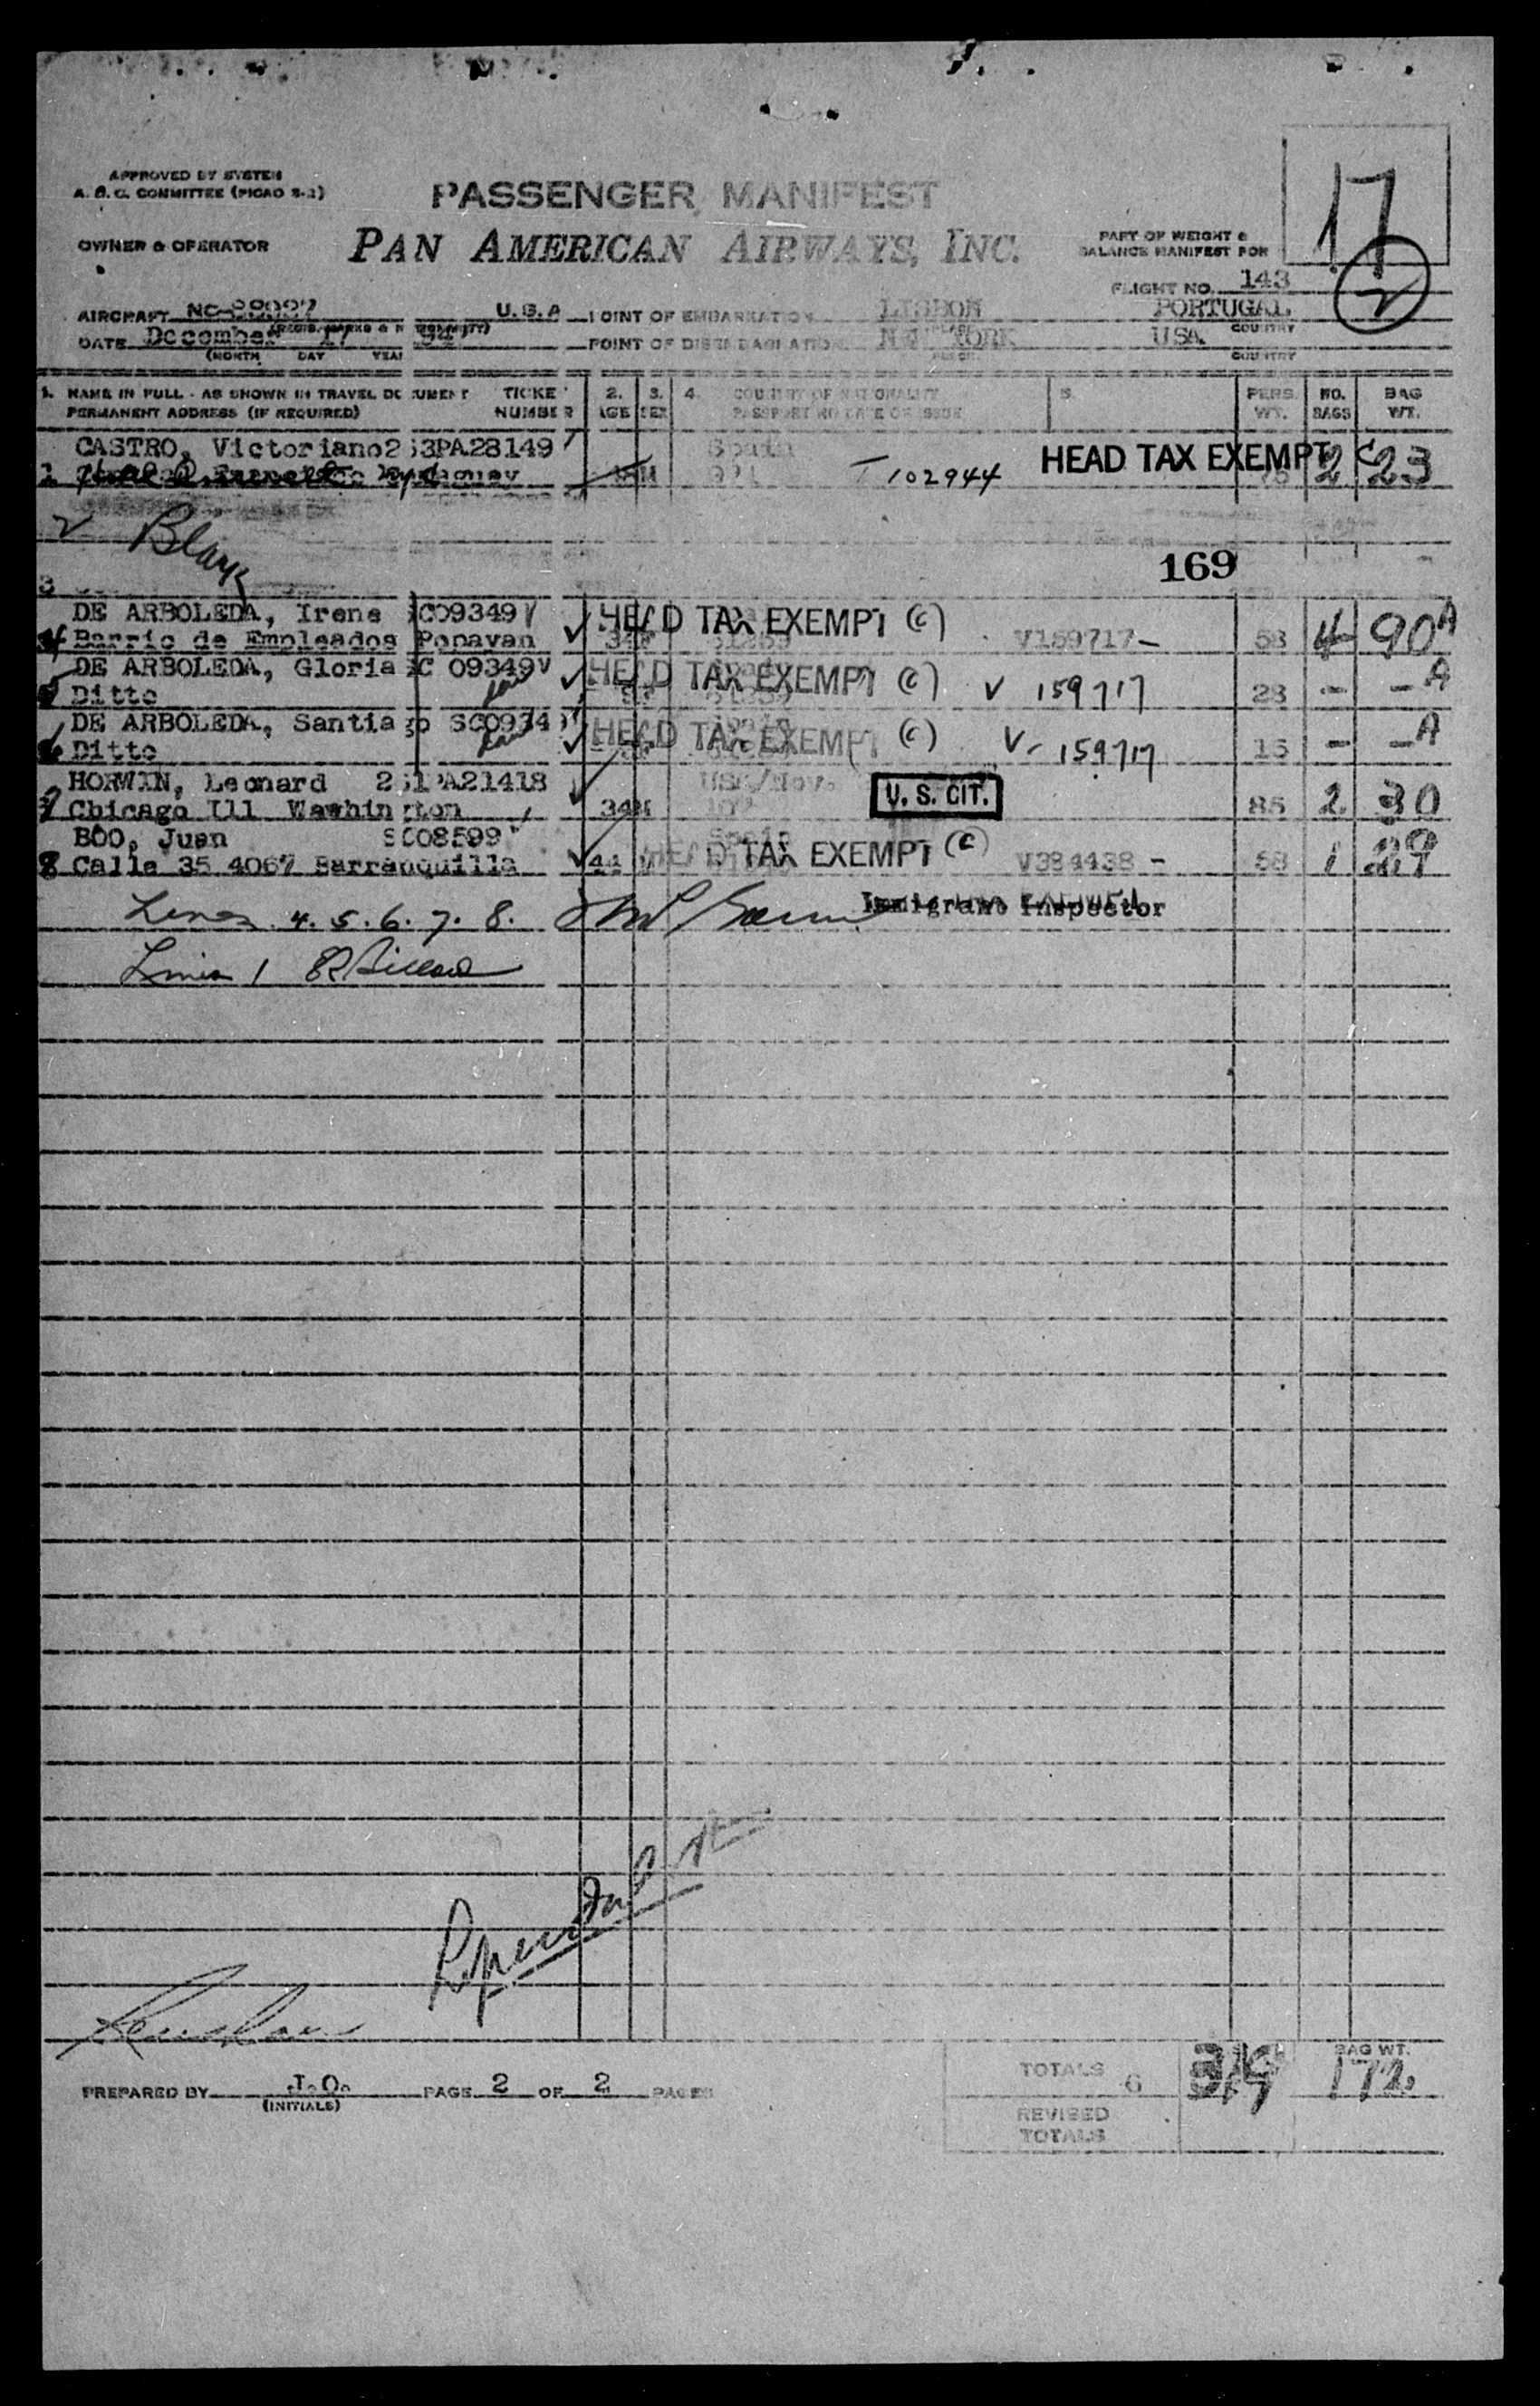 APPROVED BY SYSTEM
A. B. C. COMMITTEE (PICAO S-2)
PASSENGER MANIFEST
17
OWNER & OPERATOR
PAN AMERICAN AIRWAYS, INC.
PART OF WEIGHT &
BALANCE MANIFEST FOR
FLIGHT NO. 143
2
AIRCRAFT NC-88087 U.S.A POINT OF EMBARKATION LISBON PORTUGAL
DATE December 17 947 POINT OF DISEMBARKATION NEW YORK USA
(MONTH DAY YEAR PLACE COUNTRY
1. NAME IN FULL - AS SHOWN IN TRAVEL DOCUMENT TICKET 2. 3. 4. COUNTRY OF NATIONALITY 5. PERS. NO. BAG
PERMANENT ADDRESS (IF REQUIRED) NUMBER AGE SEX PASSPORT NO DATE OF ISSUE WT. BAGS WT.
CASTRO, Victoriano 253PA28149 Spain HEAD TAX EXEMPT C
1 T 102944 2 23
2 Blank
169
3
DE ARBOLEDA, Irene SC09349 HEAD TAX EXEMPT (C)
4 Barrio de Empleados Popayan 34F V159717 - 58 4 90 A
DE ARBOLEDA, Gloria SC 09349 HEAD TAX EXEMPT (C) V 159717
5 Ditto 28 - - A
DE ARBOLEDA, Santiago SC0934 HEAD TAX EXEMPT (C) V- 159717
6 Ditto 15 - - A
HORWIN, Leonard 251PA21418 USA/Nov. U. S. CIT.
7 Chicago Ill Washington 34M 85 2 30
BOO, Juan SC08599 Spain HEAD TAX EXEMPT (C)
8 Calle 35 4067 Barranquilla 44 M V384438 - 68 1 29
Lines 4. 5. 6. 7. 8. Immigrant Inspector
Lines 1
PREPARED BY J.O. PAGE 2 OF 2 PAGES
(INITIALS)
TOTALS 6 BAG WT. 172
REVISED
TOTALS